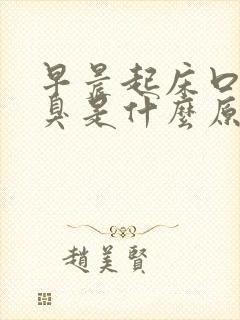 早晨起床口
臭是什麼原
趙美賢